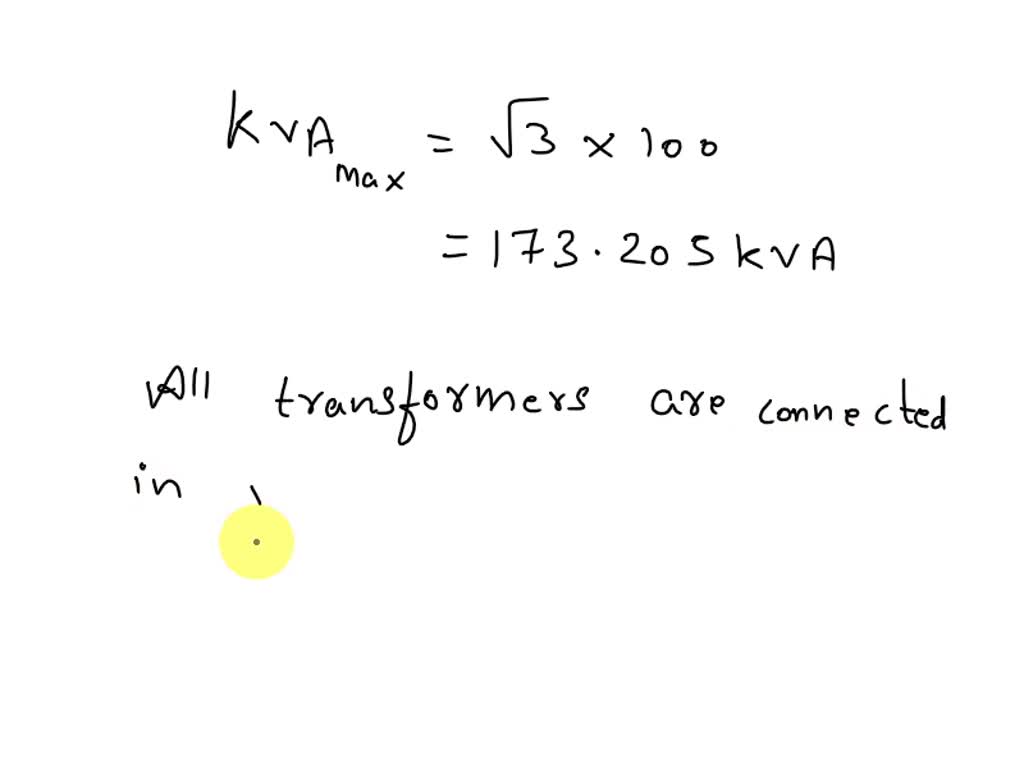 kVA max = √3 × 100
= 173.205 kVA
All transformers are connected
in